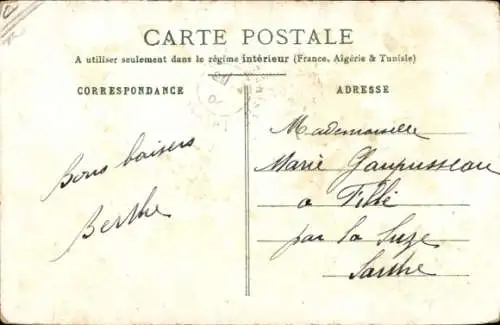 CARTE POSTALE
A utiliser seulement dans le régime intérieur (France, Algérie & Tunisie)
CORRESPONDANCE
Bons baisers
Berthe
ADRESSE
Mademoiselle
Marie
a Fillé
par la Suze
Sarthe